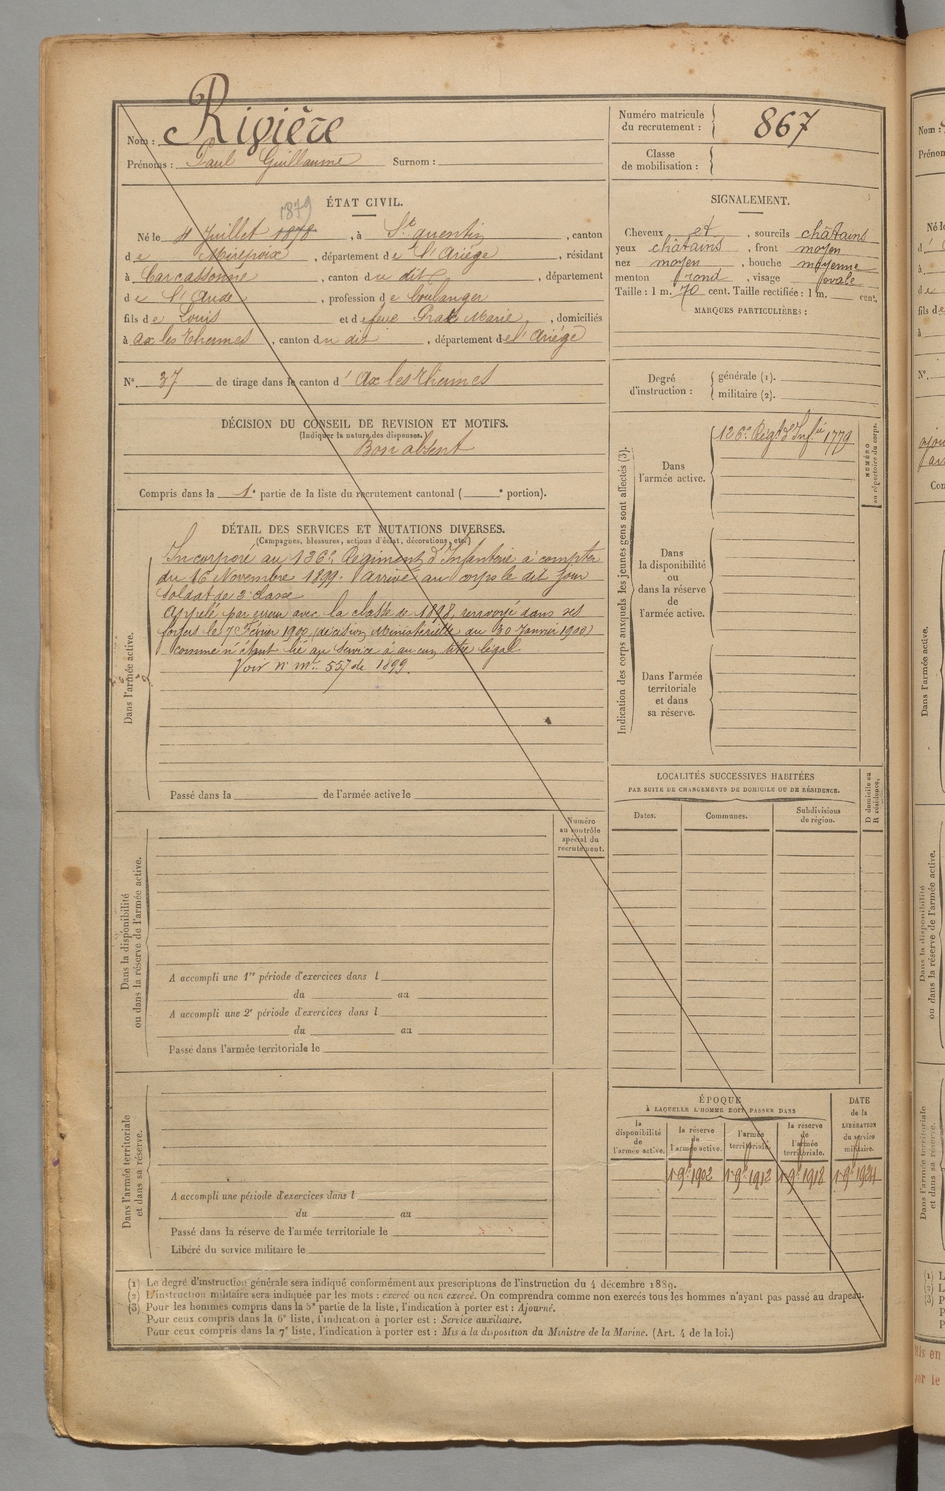 Nom : Rivière
Prénoms : Paul Guillaume Surnom :
Numéro matricule du recrutement : 867
Classe de mobilisation :
ÉTAT CIVIL.
1879
Né le 4 Juillet 1878, à St quentin, canton
de Mirepoix, département de l'Ariége, résidant
à Carcassonne, canton du dit, département
de l'Aude, profession de boulanger
fils de Louis et de feue Marie, domiciliés
à ax les thermes, canton du dit, département de l'Ariége
N° 37 de tirage dans le canton d'Ax les thermes
DÉCISION DU CONSEIL DE REVISION ET MOTIFS.
(Indiquer la nature des dispenses.)
Bon absent
Compris dans la 1e partie de la liste du recrutement cantonal ( e portion).
DÉTAIL DES SERVICES ET MUTATIONS DIVERSES.
(Campagnes, blessures, actions d'éclat, décorations, etc.)
Dans l'armée active.
Incorporé au 126e Régiment d'Infanterie à compter
du 16 Novembre 1899. Arrivé au corps le dit jour
soldat de 2e classe
Appelé par erreur avec la classe de 1898, renvoyé dans ses
foyers le 7 Février 1900 (décision Ministérielle du 30 Janvier 1900)
comme n'étant lié au service à aucun titre légal
Voir n° mle 557 de 1899.
Passé dans la de l'armée active le
Dans la disponibilité ou dans la réserve de l'armée active.
Numéro au contrôle spécial du recrutement.
A accompli une 1re période d'exercices dans l
du au
A accompli une 2e période d'exercices dans l
du au
Passé dans l'armée territoriale le
Dans l'armée territoriale et dans sa réserve.
A accompli une période d'exercices dans l
du au
Passé dans la réserve de l'armée territoriale le
Libéré du service militaire le
SIGNALEMENT.
Cheveux et, sourcils châtains
yeux châtains, front moyen
nez moyen, bouche moyenne
menton rond, visage ovale
Taille : 1 m. 70 cent. Taille rectifiée : 1 m. cent.
MARQUES PARTICULIÈRES :
Degré d'instruction :
générale (1).
militaire (2).
Indication des corps auxquels les jeunes gens sont affectés (3).
Dans l'armée active.
126e Régt d'Infie 1779
NUMÉRO au répertoire du corps.
Dans la disponibilité ou dans la réserve de l'armée active.
Dans l'armée territoriale et dans sa réserve.
LOCALITÉS SUCCESSIVES HABITÉES
PAR SUITE DE CHANGEMENTS DE DOMICILE OU DE RÉSIDENCE.
D domicile ou R résidence.
Dates. Communes. Subdivisions de région.
ÉPOQUE
À LAQUELLE L'HOMME DOIT PASSER DANS
DATE de la LIBÉRATION du service militaire.
la disponibilité de l'armée active.
la réserve de l'armée active.
l'armée territoriale.
la réserve de l'armée territoriale.
1 9bre 1902 1 9bre 1912 1 9bre 1918 1 9bre 1924
(1) Le degré d'instruction générale sera indiqué conformément aux prescriptions de l'instruction du 4 décembre 1889.
(2) L'instruction militaire sera indiquée par les mots : exercé ou non exercé. On comprendra comme non exercés tous les hommes n'ayant pas passé au drapeau.
(3) Pour les hommes compris dans la 5e partie de la liste, l'indication à porter est : Ajourné.
Pour ceux compris dans la 6e liste, l'indication à porter est : Service auxiliaire.
Pour ceux compris dans la 7e liste, l'indication à porter est : Mis à la disposition du Ministre de la Marine. (Art. 4 de la loi.)